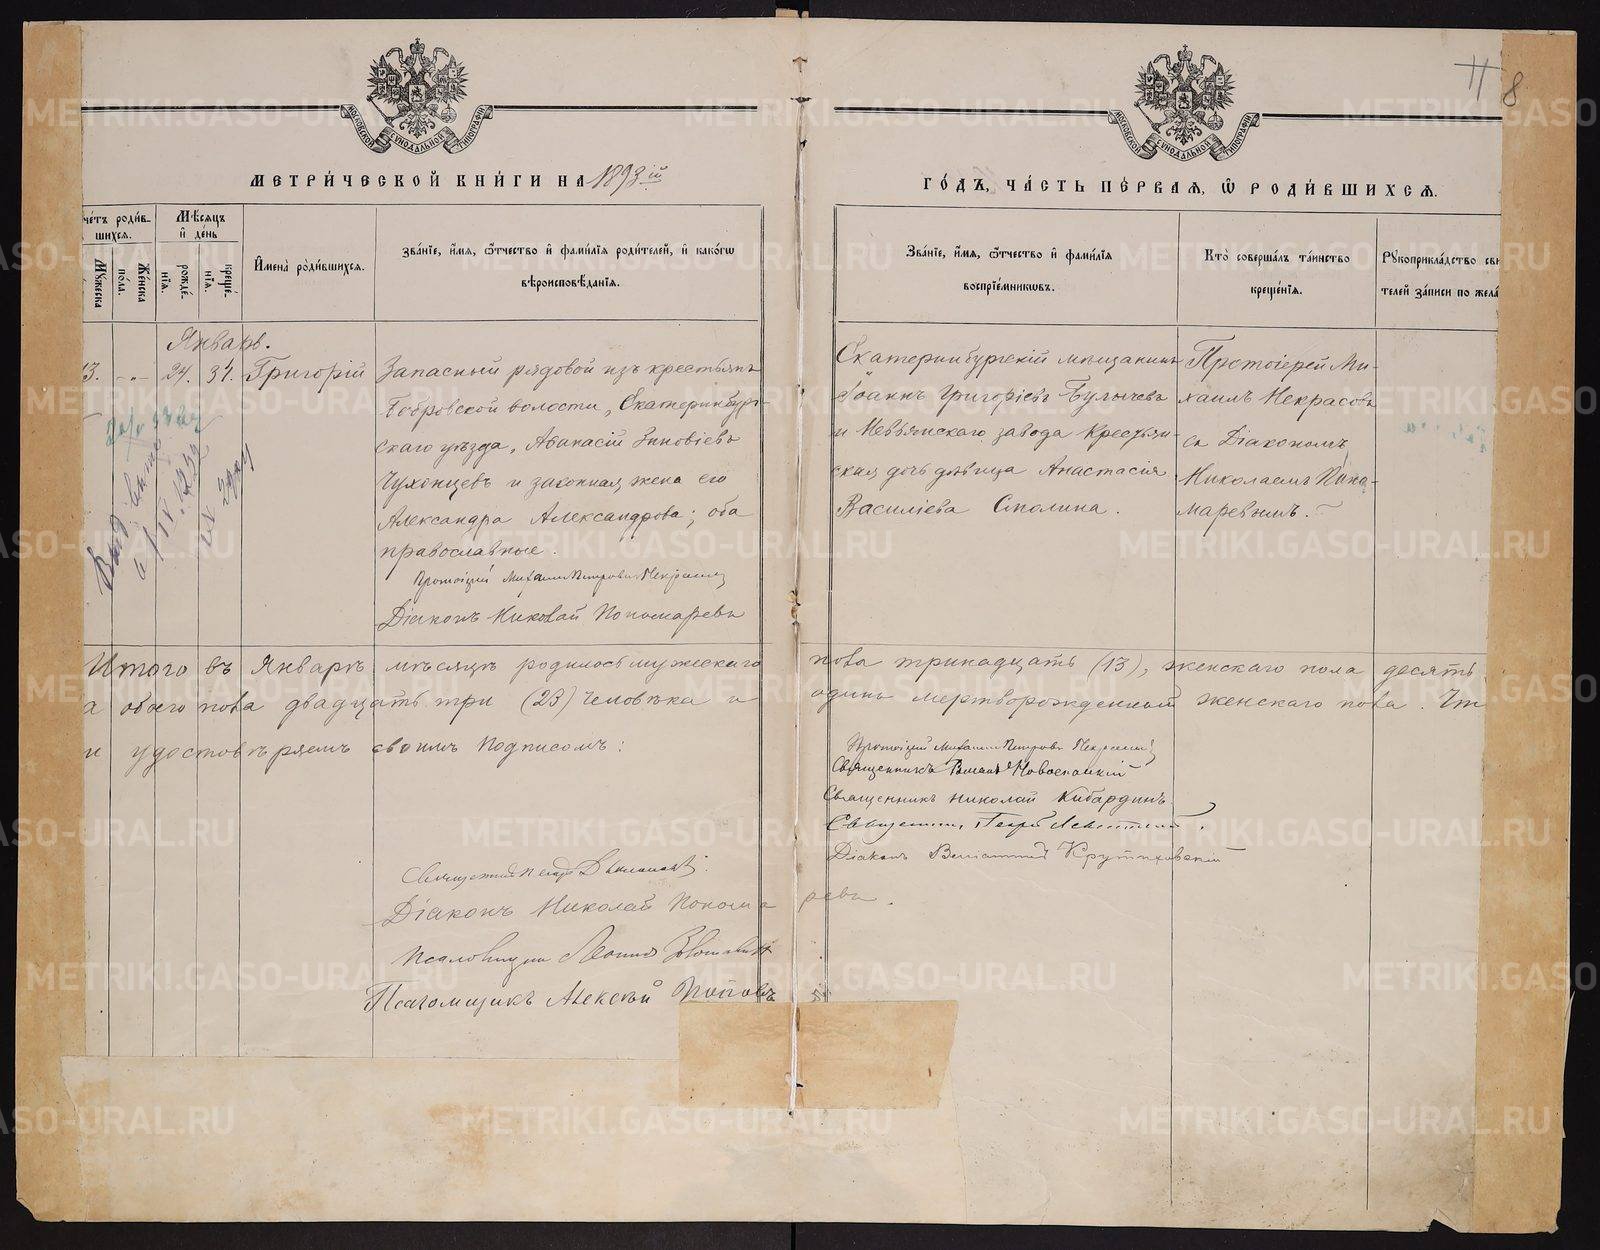 МЕТРИ́ЧЕСКОЙ КНИ́ГИ НА 1893ій
ГО́ДЪ, ЧА́СТЬ ПЕ́РВАЯ, Ѽ РОДИ́ВШИХСЯ.
11 8
МОСКОВСКОЙ СѴНОДАЛЬНОЙ ТИПОГРАФІИ
МОСКОВСКОЙ СѴНОДАЛЬНОЙ ТИПОГРАФІИ
че́тъ роди́в-
шихся.
Му́жеска
по́ла.
Же́нска
Мѣ́сяцъ
и҆ де́нь
рожде́-
нїя.
креще́-
нїя.
И҆мена̀ роди́вшихся.
Зва́нїе, и҆́мя, ѻ҆́тчество и҆ фами́лїя роди́телей, и҆ како́гѡ
вѣроисповѣ́данїя.
Зва́нїе, и҆́мя, ѻ҆́тчество и҆ фами́лїя
воспрїе́мникѡвъ.
Кто̀ соверша́лъ та́инство
креще́нїя.
Рꙋкоприкла́дство сви
телей за́писи по жела́
Январь.
13. -"- 24. 31. Григорій
Запасный рядовой изъ крестьянъ
Бобровской волости, Екатеринбург-
скаго уѣзда, Аѳанасій Зиновіевъ
Чухонцевъ и законная жена его
Александра Александрова; оба
православные.
Протоіерей Михаилъ Петровъ Некрасовъ
Діаконъ Николай Пономаревъ
Екатеринбургскій мѣщанинъ
Іоаннъ Григоріевъ Булычевъ
и Невьянскаго завода Крестьян-
ская дочь дѣвица Анастасія
Василіева Смолина.
Протоіерей Ми-
хаилъ Некрасовъ
съ Діакономъ
Николаемъ Поно-
маревымъ.
Итого въ Январѣ мѣсяцѣ родилось мужескаго пола тринадцать (13), женскаго пола десять
а обоего пола двадцать три (23) человѣка и одинъ мертворожденный женскаго пола. Что
и удостовѣряемъ своимъ подписомъ:
Протоіерей Михаилъ Петровъ Некрасовъ
Священникъ Новоспасскій
Священникъ Николай Кибардинъ
Священникъ
Діаконъ Веніаминъ Крутиховскій
Священникъ Петръ
Діаконъ Николай Пономаревъ.
Псаломщикъ Леонидъ
Псаломщикъ Алексѣй Поповъ
METRIKI.GASO-URAL.RU